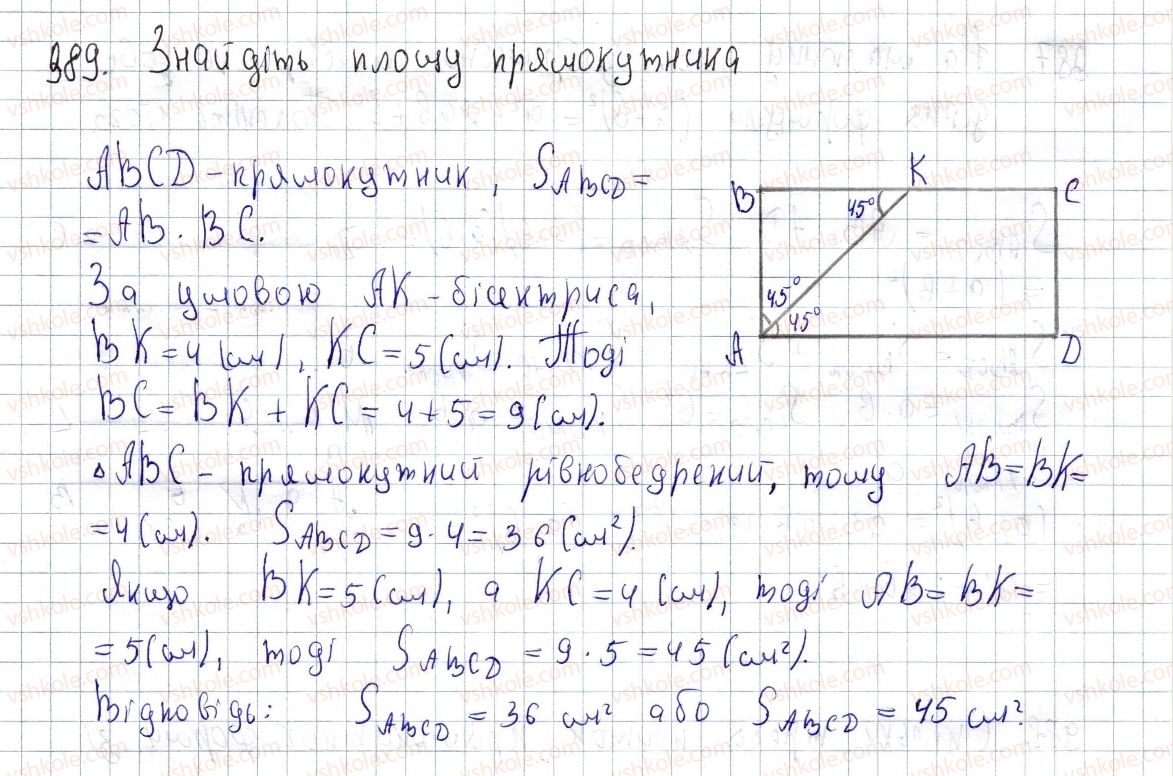 989. Знайдіть площу прямокутника
ABCD – прямокутник, S_ABCD =
= AB · BC.
За умовою AK – бісектриса,
BK = 4 (см), KC = 5 (см). Тоді
BC = BK + KC = 4 + 5 = 9 (см).
∆ ABC – прямокутний рівнобедрений, тому AB = BK =
= 4 (см). S_ABCD = 9 · 4 = 36 (см²).
Якщо BK = 5 (см), а KC = 4 (см), тоді AB = BK =
= 5 (см), тоді S_ABCD = 9 · 5 = 45 (см²).
Відповідь: S_ABCD = 36 см² або S_ABCD = 45 см².
B K C
45°
45°
45°
A D
vshkole.com